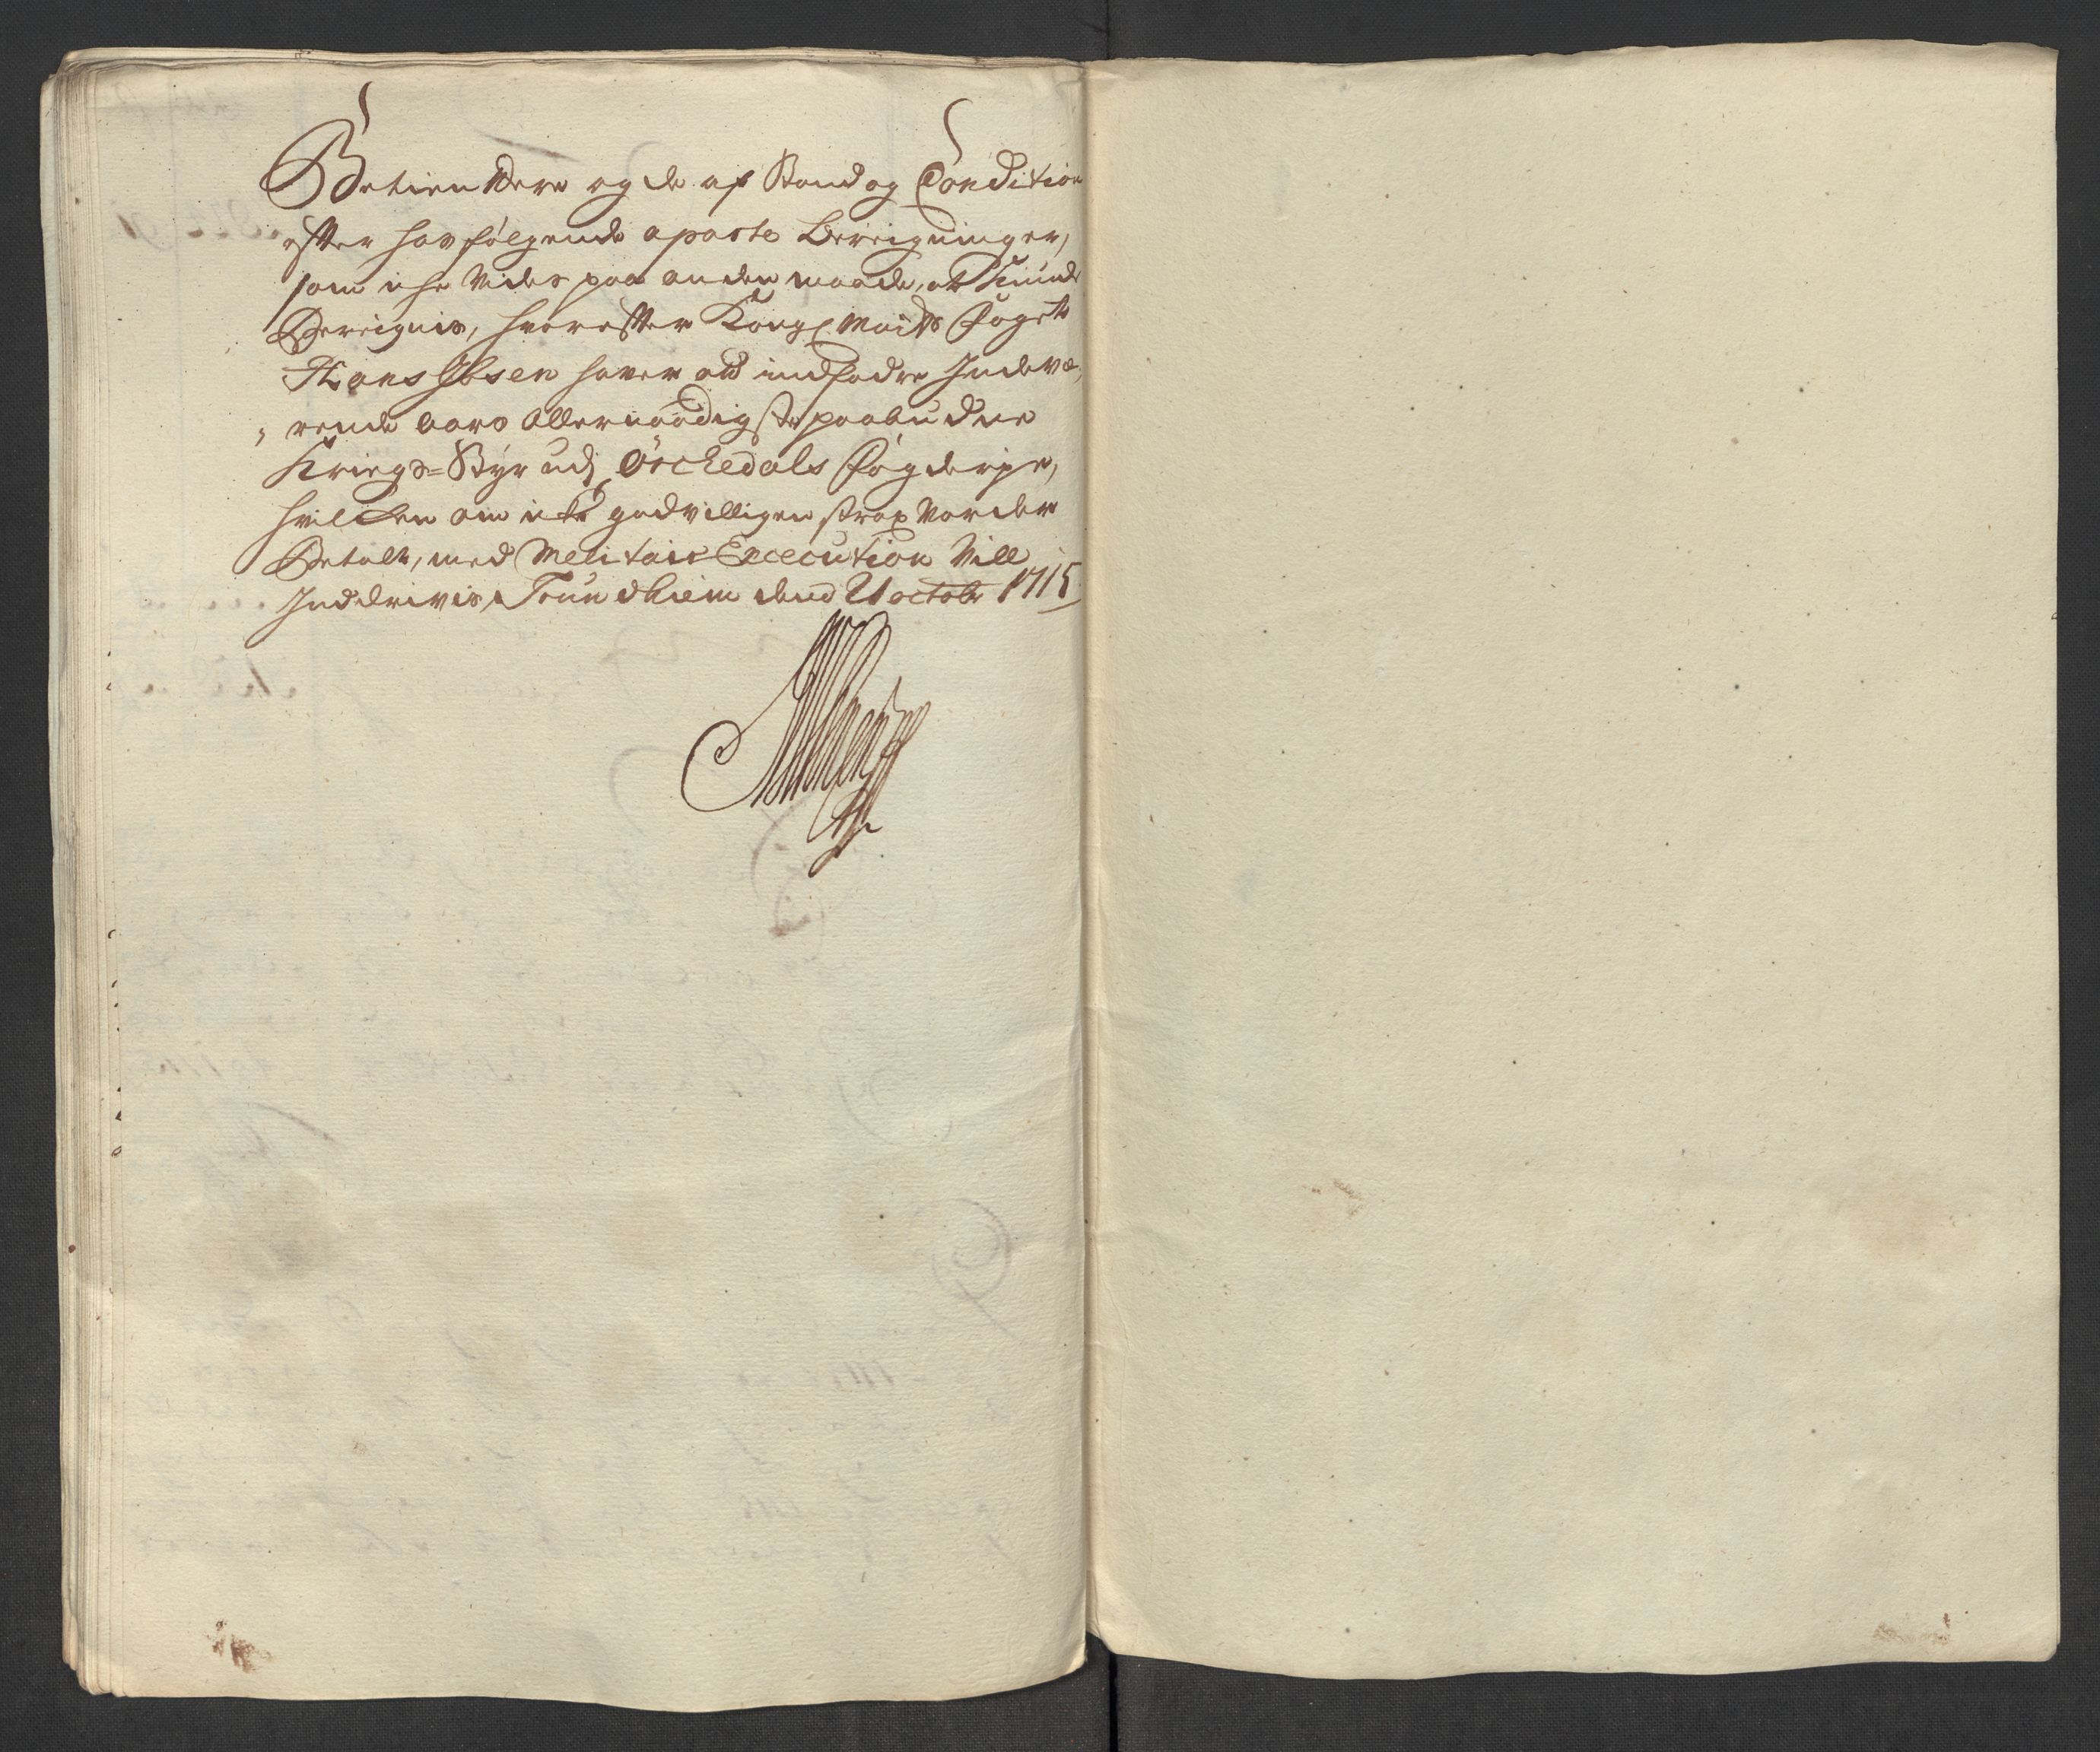 Betiendtere og de af Stand og Condition
efter hosfølgende aparte Bereigninger,
som iche Vides paa anden maade, at kunde
Bereignis, hvorefter Kongl Maits Foget
Hans Ibsen haver at indfodre Indevæ,
, rende Aars Allernaadigste paabudne
Kriegs=Styr udj Örchedals Fogderje,
hvilken om iche godvilligen strax vorder
Betalt, med Melitair Execution Vill
Inddrivis, Trundhiem dend 21 octobr 1715